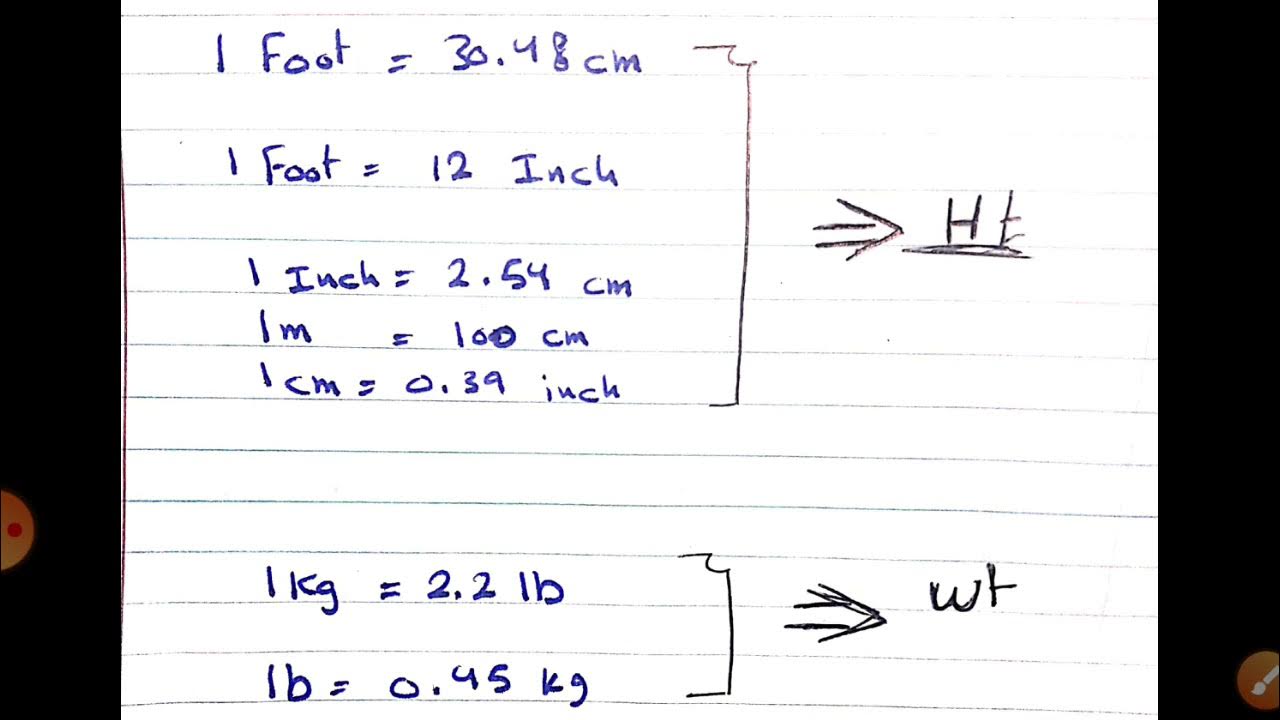 1 Foot = 30.48 cm
1 Foot = 12 Inch
1 Inch = 2.54 cm
1m = 100 cm
1 cm = 0.39 inch
⇒ Ht
1 kg = 2.2 lb
lb = 0.45 kg
⇒ wt